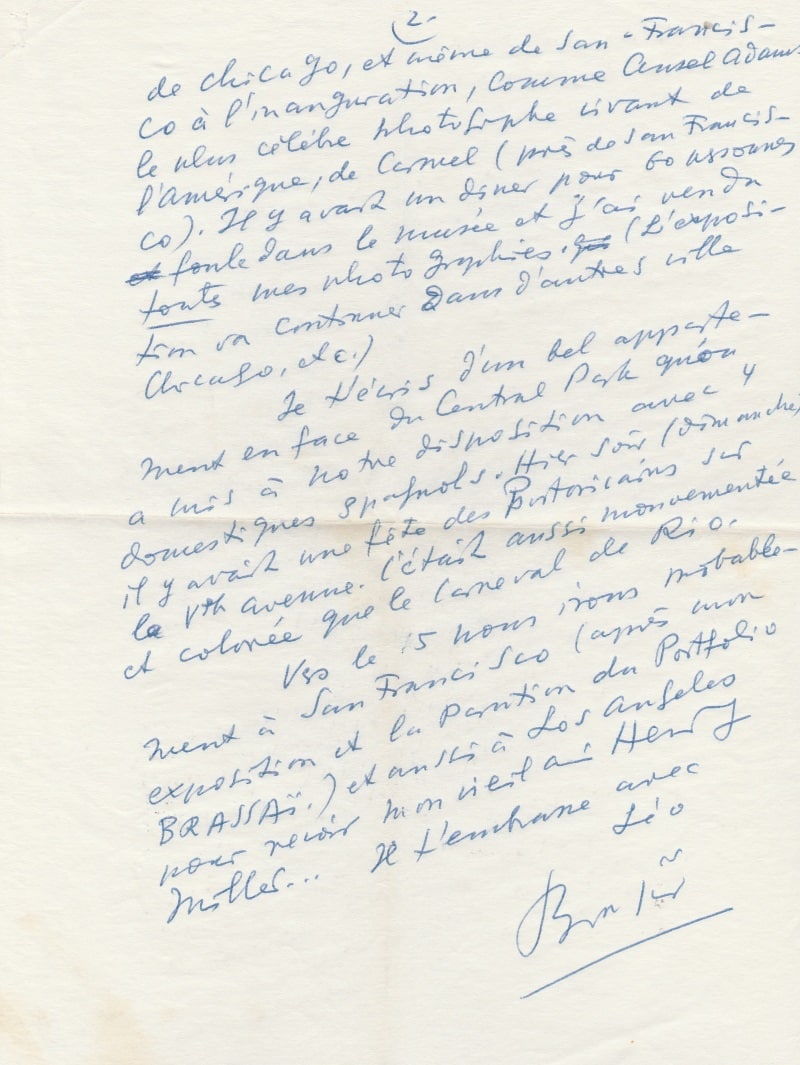 2.
de chicago, et même de San-Francis-
co à l'inauguration, comme Ansel Adams
le plus célèbre photographe vivant de
l'Amérique, de Carmel (près de San Francis-
co). Il y avait un diner pour 60 personnes
foule dans le musée et j'ai vendu
touts mes photographies. (L'exposi-
tion va continuer dans d'autres ville
Chicago, etc.)
Je t'écris d'un bel apparte-
ment en face du Central Park qu'on
a mis à notre disposition avec 4
domestiques Spagnols. Hier soir (dimanche)
il y avait une fête des Portoricains sur
la Vth avenue. C'était aussi mouvementée
et colorée que le Carneval de Rio.
Vers le 15 nous irons probable-
ment à San Francisco (après mon
exposition et la Parution du Portfolio
BRASSAÏ.) et aussi à Los Angeles
pour revoir mon vieil ami Henry
Miller... Je t'embrasse avec
Léo
Brassaï